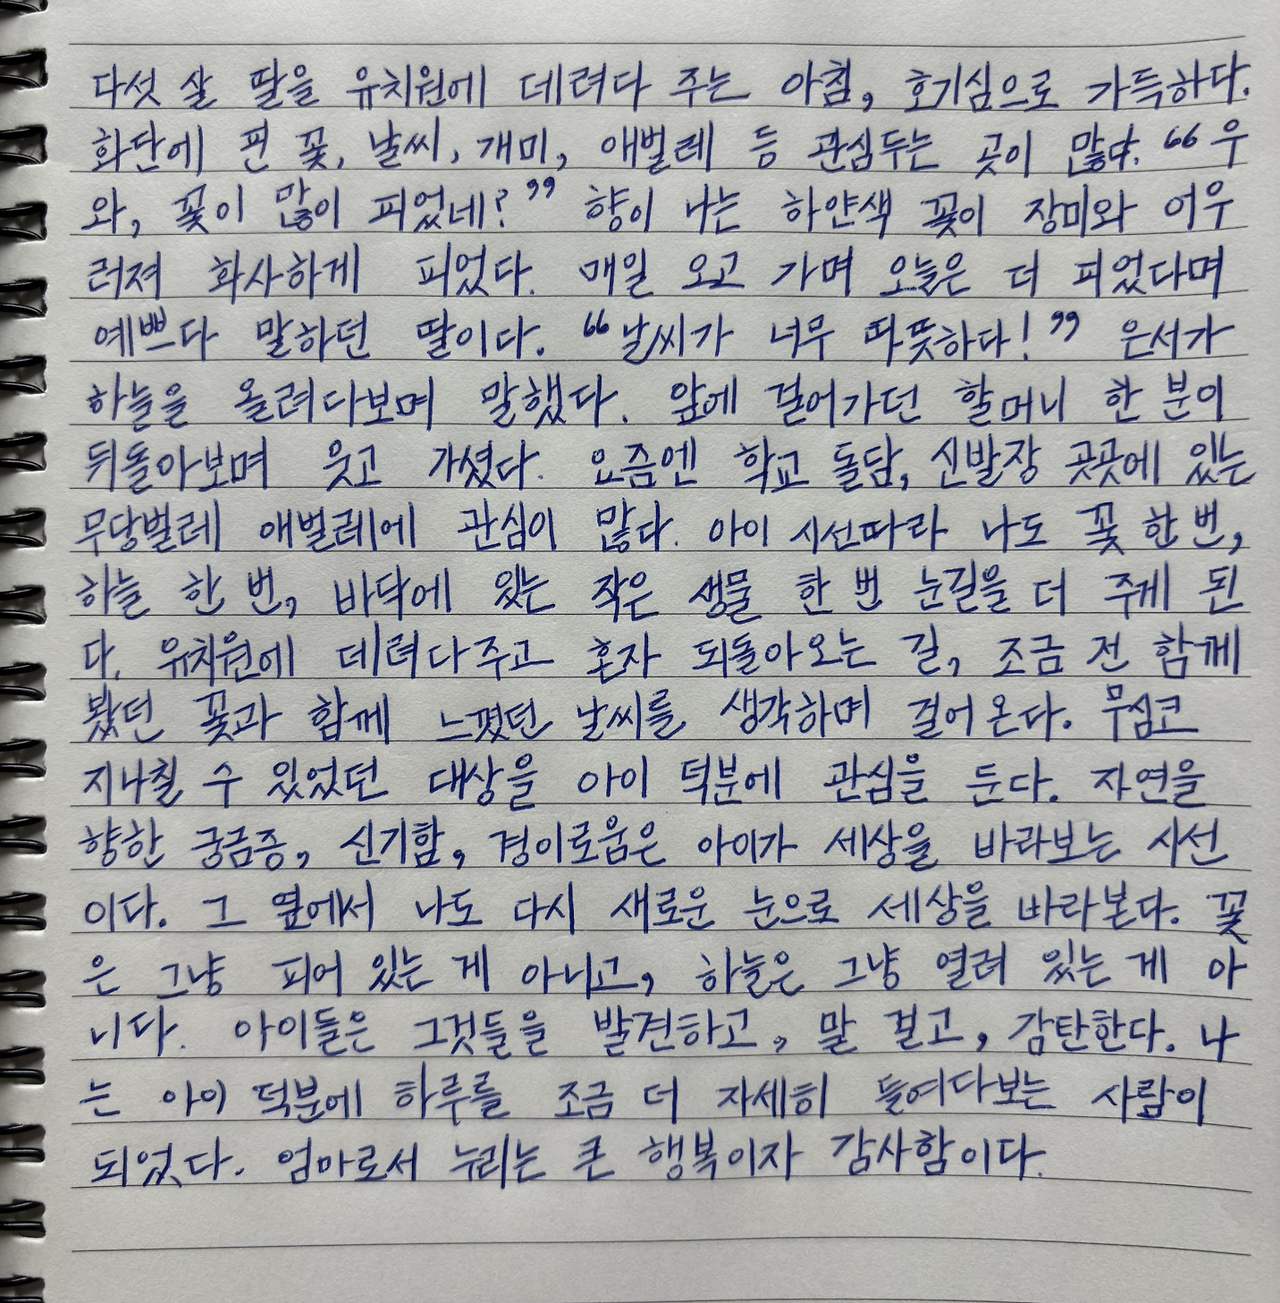 다섯 살 딸을 유치원에 데려다 주는 아침, 호기심으로 가득하다.
화단에 핀 꽃, 날씨, 개미, 애벌레 등 관심두는 곳이 많다. “우
와, 꽃이 많이 피었네?” 향이 나는 하얀색 꽃이 장미와 어우
러져 화사하게 피었다. 매일 오고 가며 오늘은 더 피었다며
예쁘다 말하던 딸이다. “날씨가 너무 따뜻하다!” 은서가
하늘을 올려다보며 말했다. 앞에 걸어가던 할머니 한 분이
뒤돌아보며 웃고 가셨다. 요즘엔 학교 돌담, 신발장 곳곳에 있는
무당벌레 애벌레에 관심이 많다. 아이 시선따라 나도 꽃 한 번,
하늘 한 번, 바닥에 있는 작은 생물 한 번 눈길을 더 주게 된
다. 유치원에 데려다주고 혼자 되돌아오는 길, 조금 전 함께
봤던 꽃과 함께 느꼈던 날씨를 생각하며 걸어온다. 무심코
지나칠 수 있었던 대상을 아이 덕분에 관심을 둔다. 자연을
향한 궁금증, 신기함, 경이로움은 아이가 세상을 바라보는 시선
이다. 그 옆에서 나도 다시 새로운 눈으로 세상을 바라본다. 꽃
은 그냥 피어 있는 게 아니고, 하늘은 그냥 열려 있는 게 아
니다. 아이들은 그것들을 발견하고, 말 걸고, 감탄한다. 나
는 아이 덕분에 하루를 조금 더 자세히 들여다보는 사람이
되었다. 엄마로서 누리는 큰 행복이자 감사함이다.